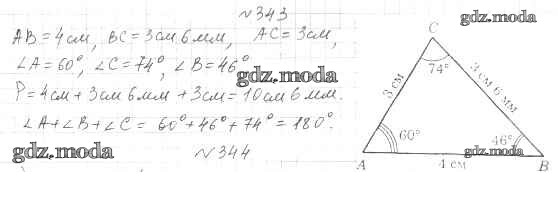 №343
gdz.moda
AB = 4 см, BC = 3 см 6 мм, AC = 3 см,
∠A = 60°, ∠C = 74°, ∠B = 46°
gdz.moda
P = 4 см + 3 см 6 мм + 3 см = 10 см 6 мм.
∠A + ∠B + ∠C = 60° + 46° + 74° = 180°.
gdz.moda
№344
C
74°
3 см
3 см 6 мм
60°
46°
gdz.moda
A
4 см
B